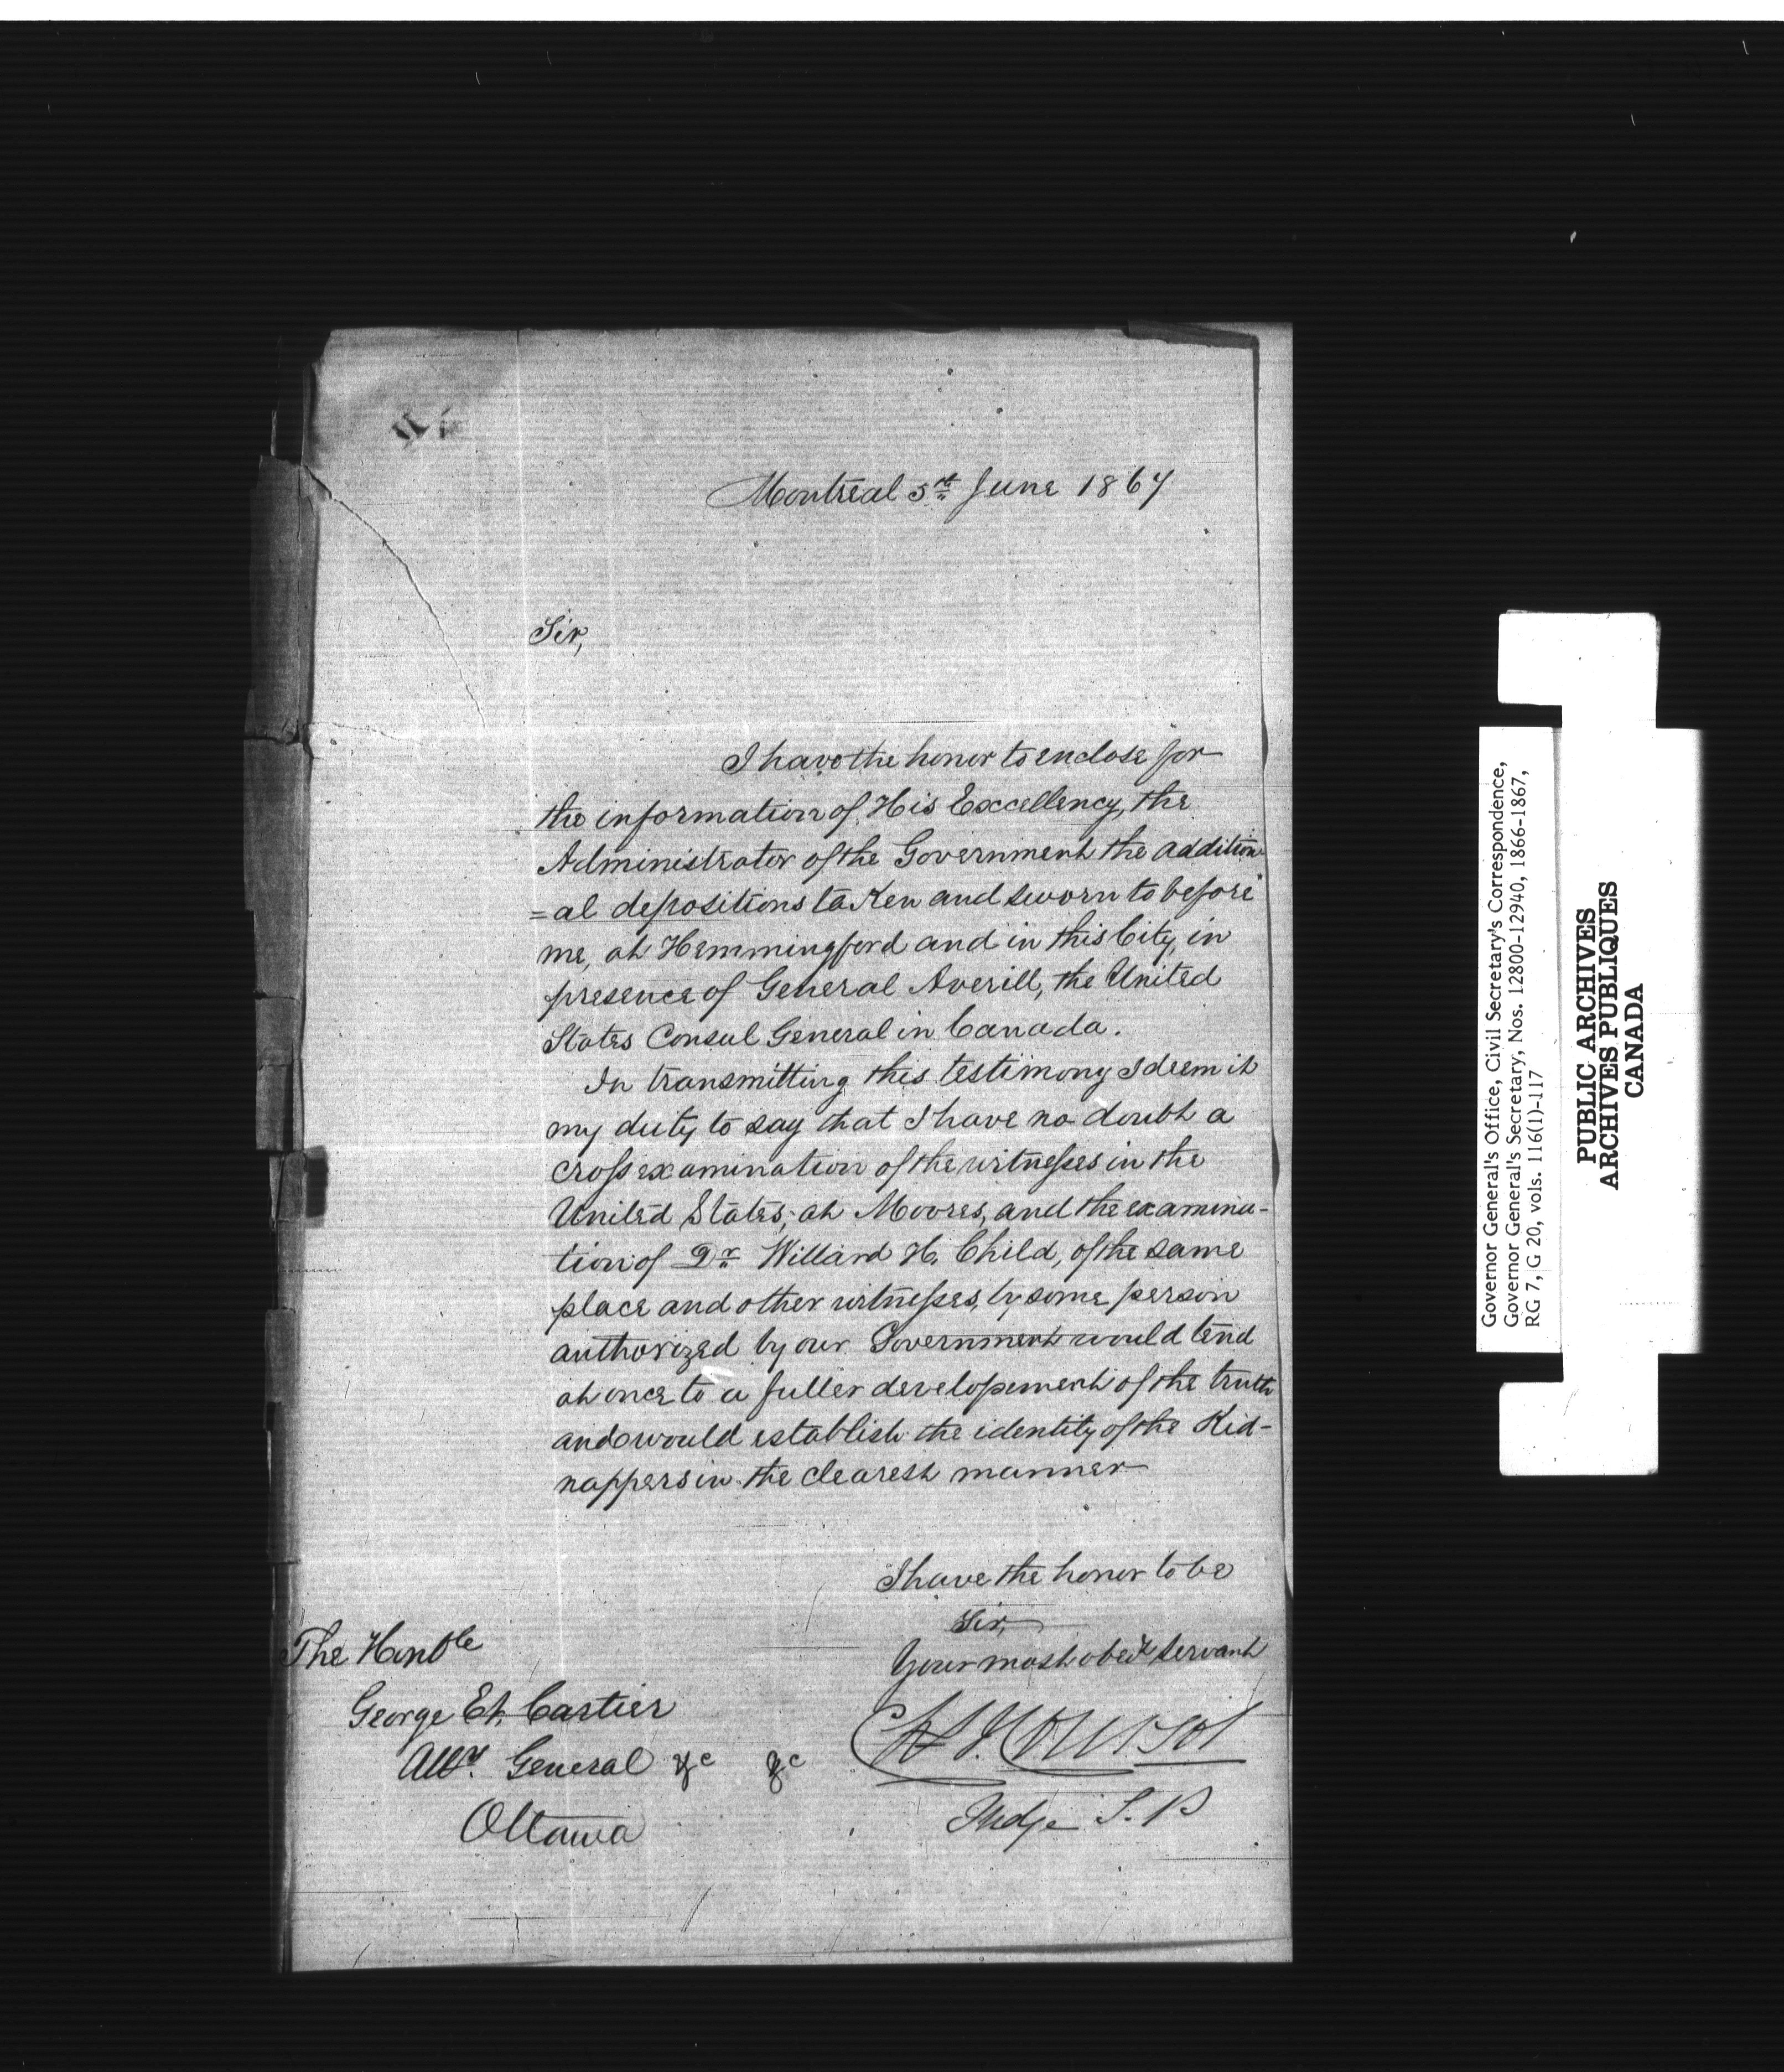 Montreal 3rd June 1867
Sir,
I have the honor to enclose for
the information of His Excellency, the
Administrator of the Government the addition
=al depositions taken and sworn to before
me, at Hemmingford and in this City, in
presence of General Averill, the United
States Consul General in Canada.
In transmitting this testimony I deem it
my duty to say that I have no doubt a
cross examination of the witnesses in the
United States, at Moores, and the examina-
tion of Dr Willard H. Child, of the same
place and other witnesses, by some person
authorized by our Government would tend
at once to a fuller developement of the truth
and would establish the identity of the Kid-
nappers in the clearest manner
I have the honor to be
Sir,
Your most obedt servant
Chs J. Coursol
Judge S. P
The Honble
George Et. Cartier
Atty. General &c &c
Ottawa
Governor General's Office, Civil Secretary's Correspondence,
Governor General's Secretary, Nos. 12800-12940, 1866-1867,
RG 7, G 20, vols. 116(1)-117
PUBLIC ARCHIVES
ARCHIVES PUBLIQUES
CANADA